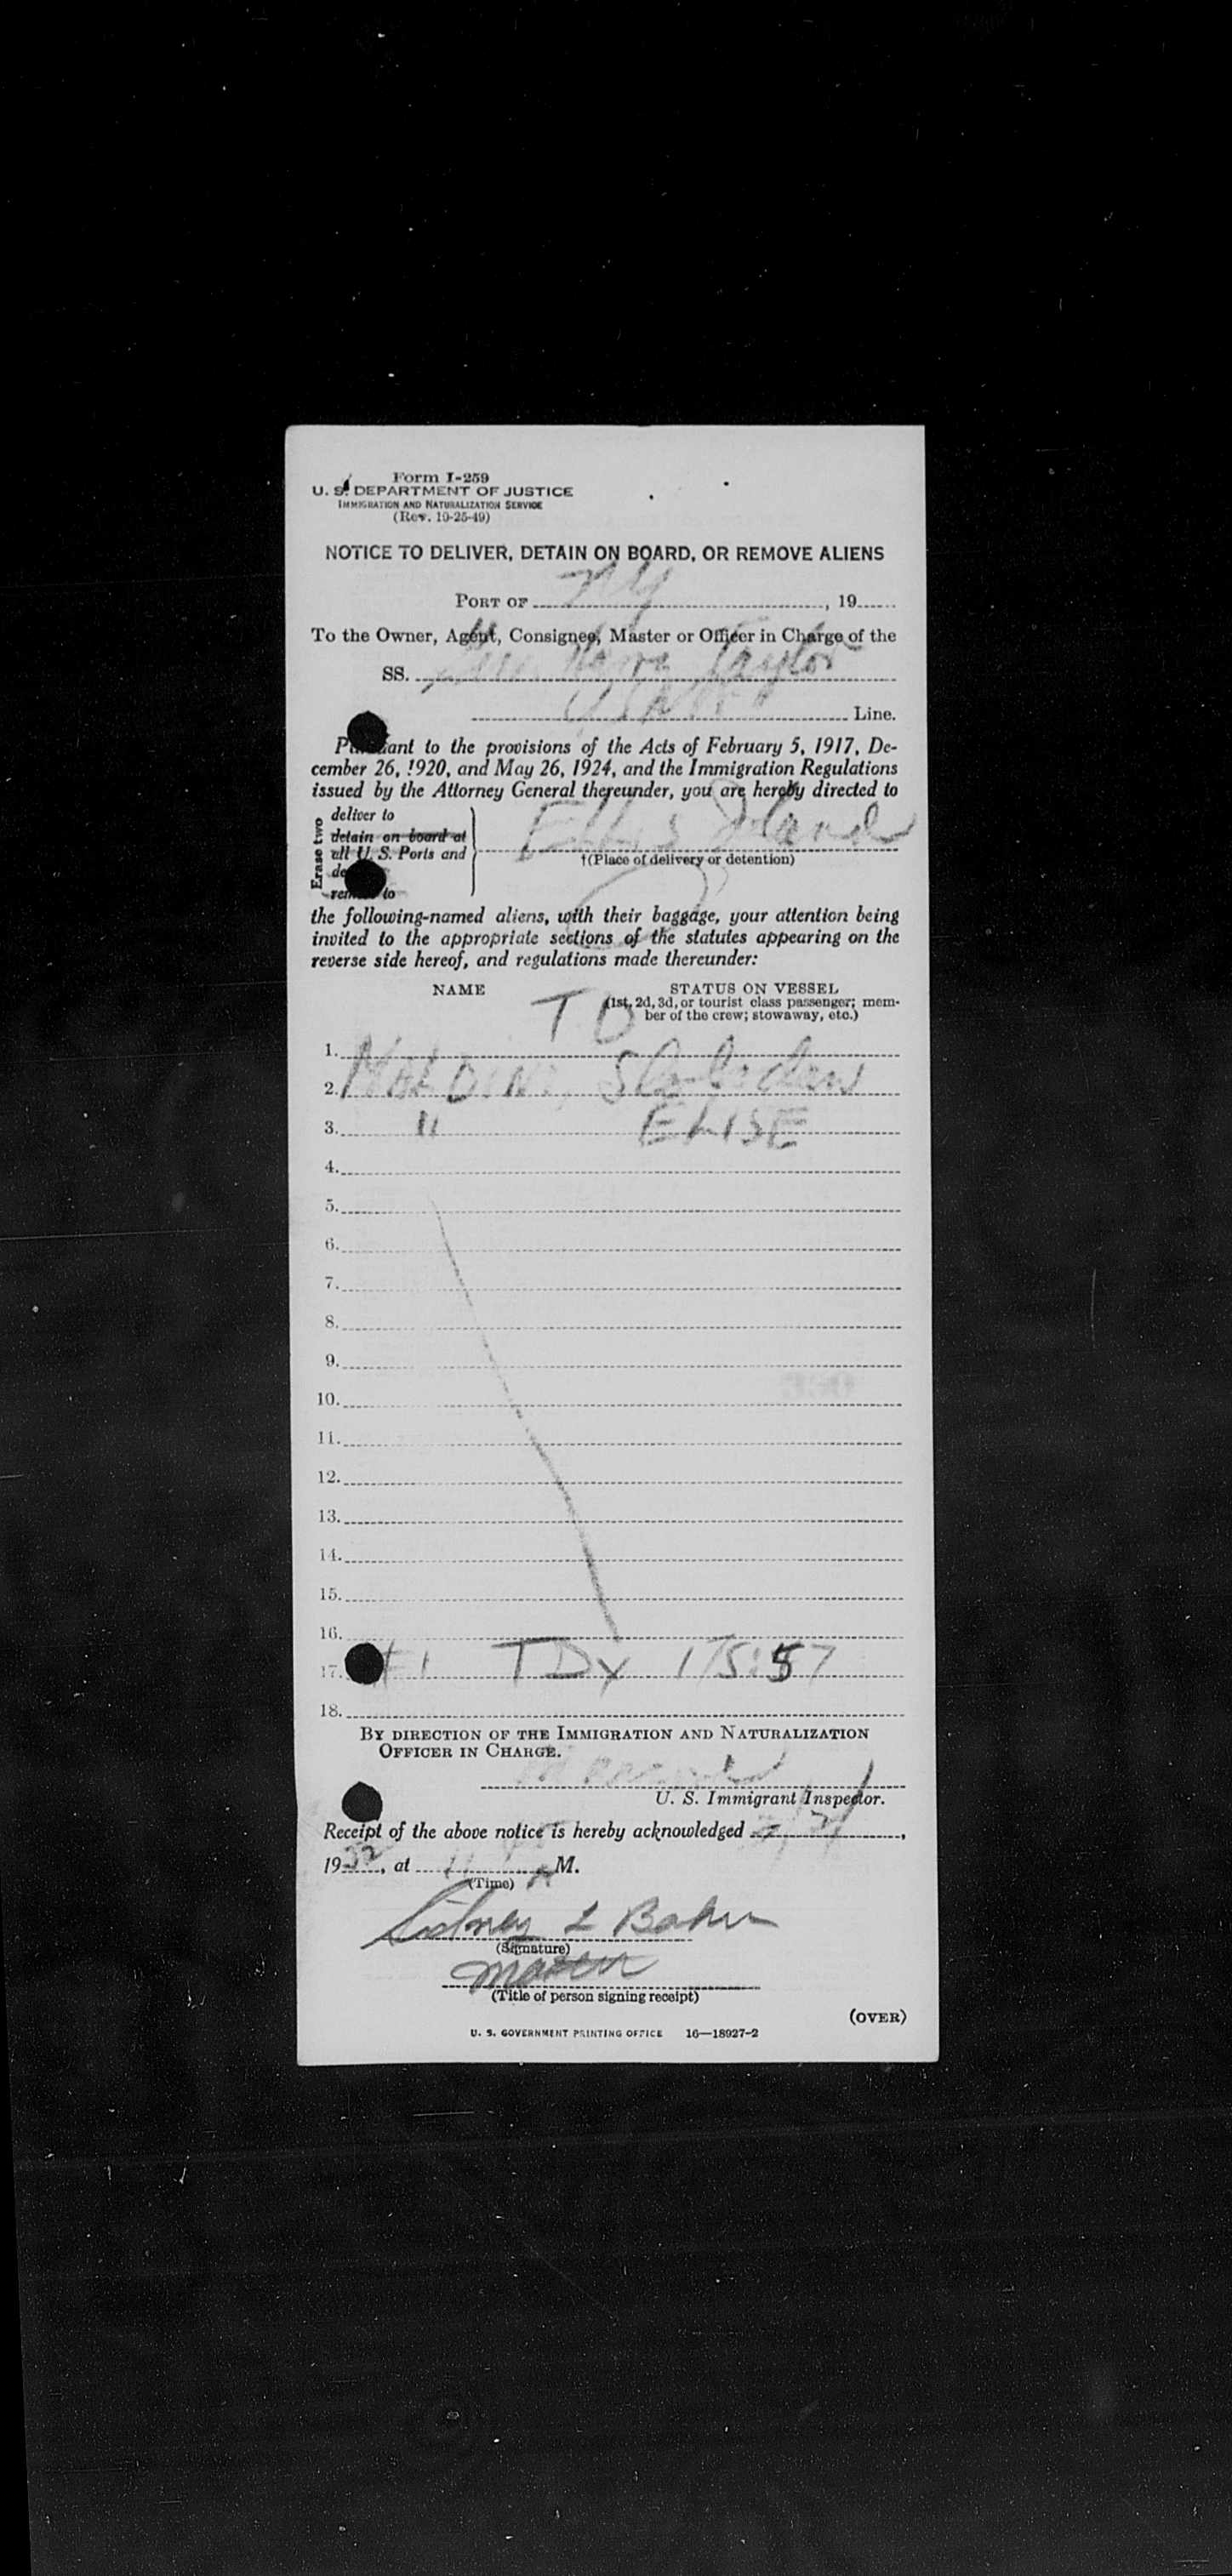 Form I-259
U. S. DEPARTMENT OF JUSTICE
IMMIGRATION AND NATURALIZATION SERVICE
(Rev. 10-25-49)
NOTICE TO DELIVER, DETAIN ON BOARD, OR REMOVE ALIENS
PORT OF NY, 19
To the Owner, Agent, Consignee, Master or Officer in Charge of the
SS. Taylor
Line.
Pursuant to the provisions of the Acts of February 5, 1917, De-
cember 26, 1920, and May 26, 1924, and the Immigration Regulations
issued by the Attorney General thereunder, you are hereby directed to
Erase two
deliver to
detain on board at
all U. S. Ports and
Ellis Island
†(Place of delivery or detention)
de
remove to
the following-named aliens, with their baggage, your attention being
invited to the appropriate sections of the statutes appearing on the
reverse side hereof, and regulations made thereunder:
NAME STATUS ON VESSEL
(1st, 2d, 3d, or tourist class passenger; mem-
ber of the crew; stowaway, etc.)
T D
1.
2.
3. " ELISE
4.
5.
6.
7.
8.
9.
10.
11.
12.
13.
14.
15.
16.
17. TDy 175:57
18.
BY DIRECTION OF THE IMMIGRATION AND NATURALIZATION
OFFICER IN CHARGE.
U. S. Immigrant Inspector.
Receipt of the above notice is hereby acknowledged
1952, at 11 A M.
(Time)
Sidney L Baker
(Signature)
(Title of person signing receipt)
(OVER)
U. S. GOVERNMENT PRINTING OFFICE 16—18927-2